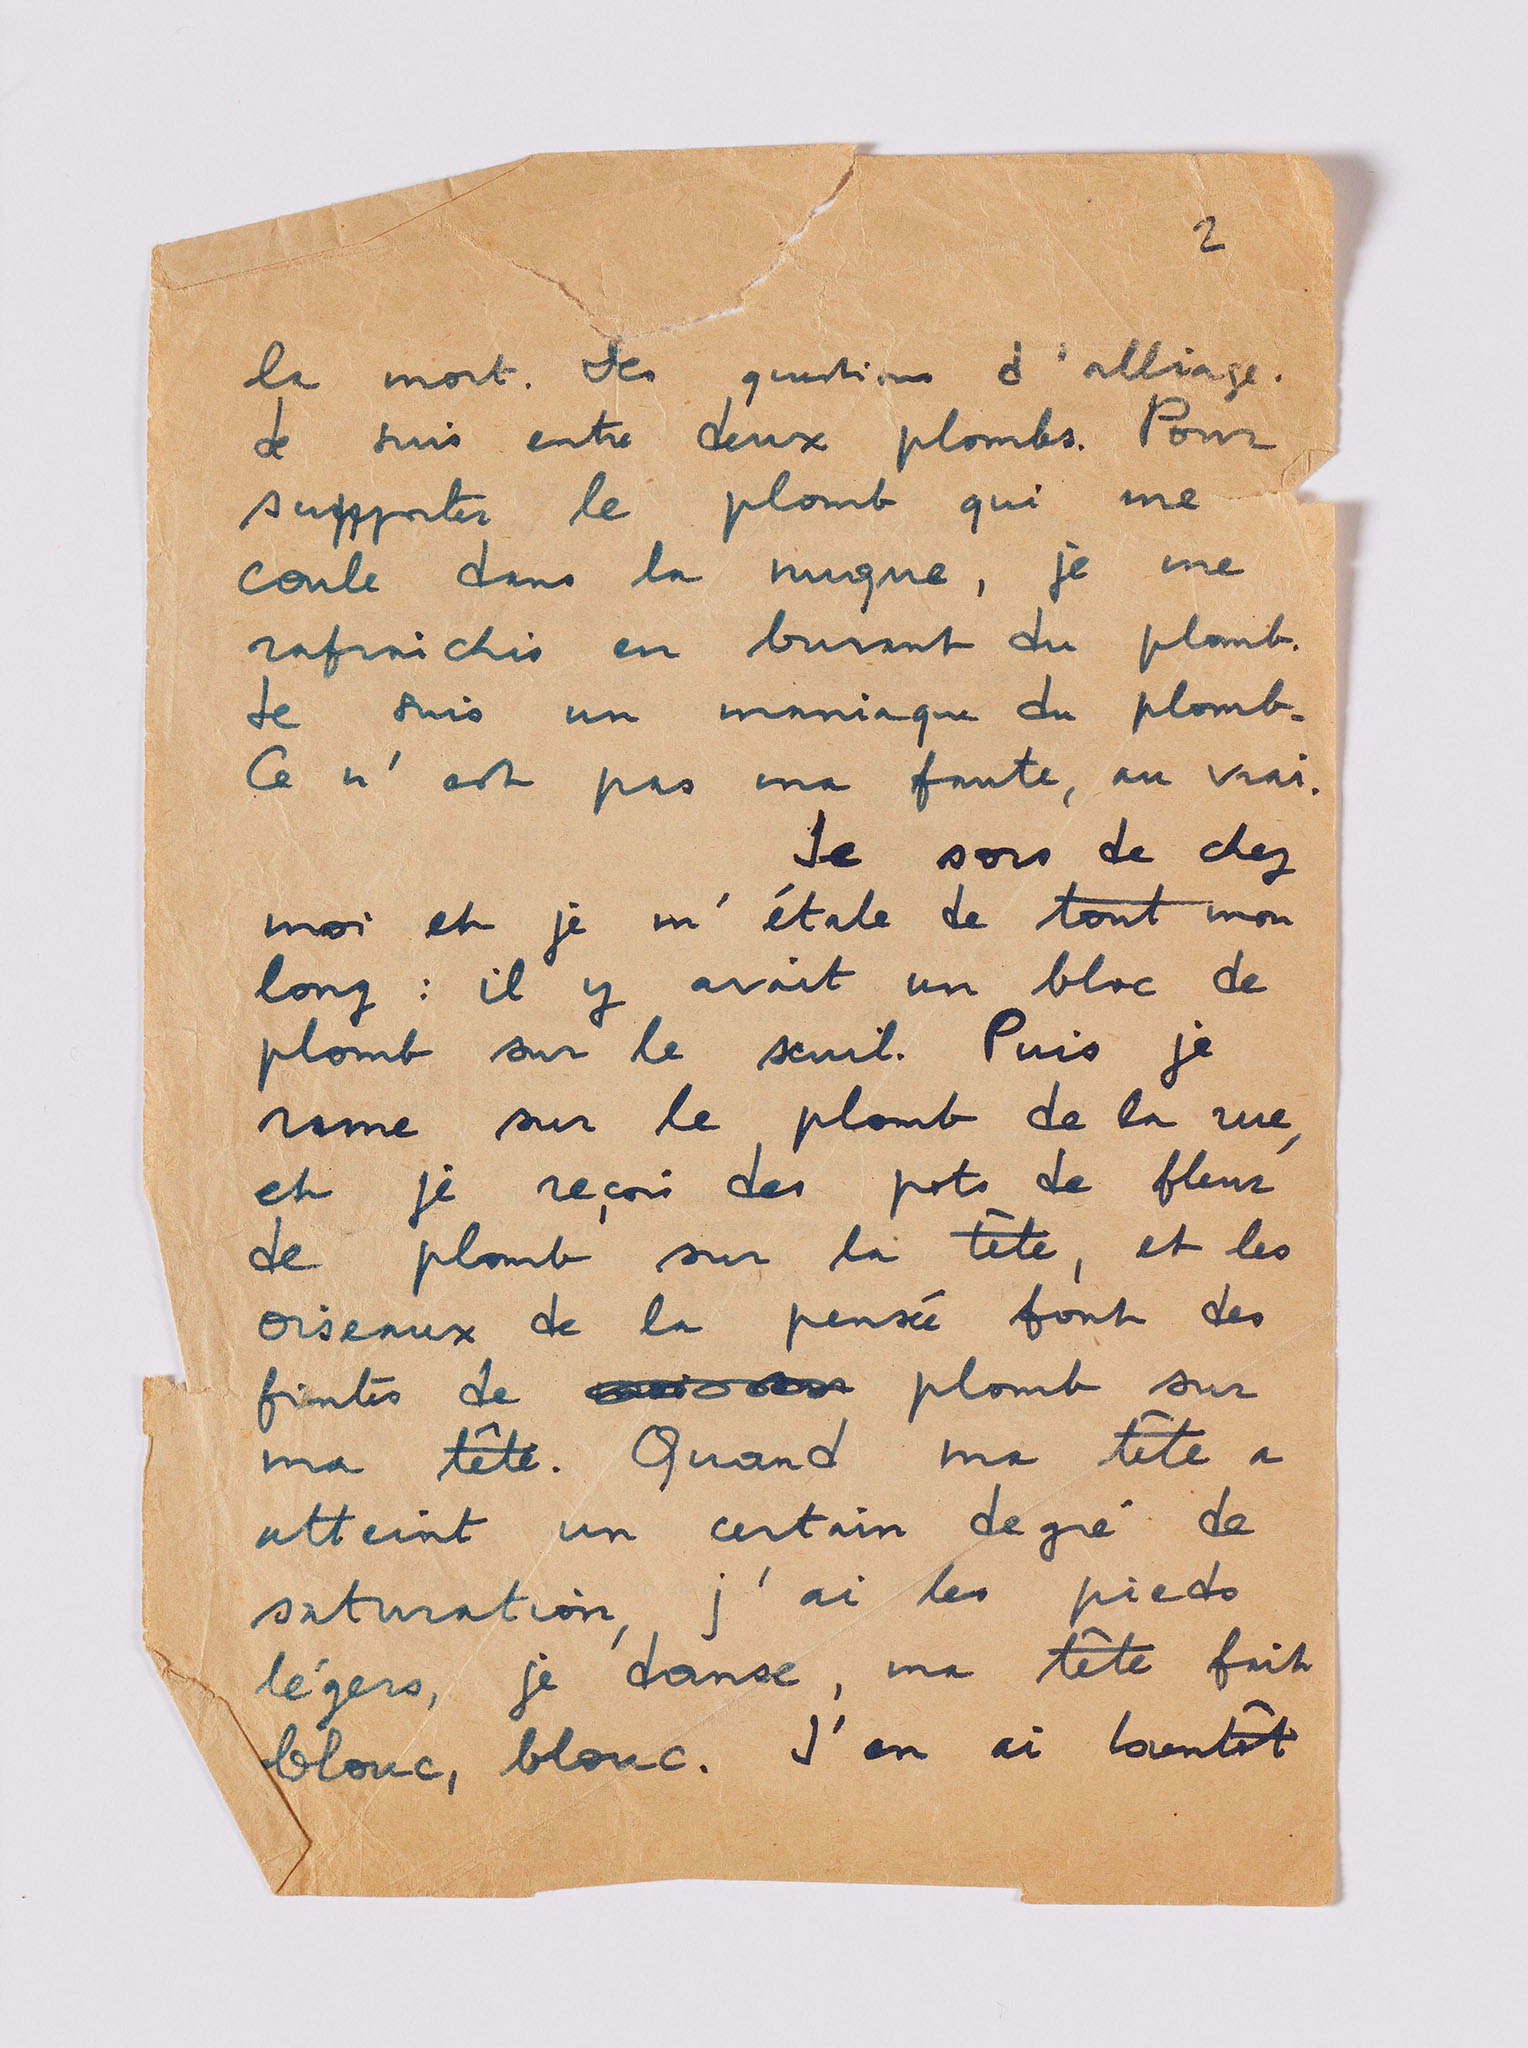 2
la mort. Des questions d'alliage.
Je suis entre deux plombs. Pour
supporter le plomb qui me
coule dans la nuque, je me
rafraichis en buvant du plomb.
Je suis un maniaque du plomb.
Ce n'est pas ma faute, au vrai.
Je sors de chez
moi et je m'étale de tout mon
long : il y avait un bloc de
plomb sur le seuil. Puis je
rame sur le plomb de la rue,
et je reçois des pots de fleur
de plomb sur la tête, et les
oiseaux de la pensée font des
fientes de plomb sur
ma tête. Quand ma tête a
atteint un certain degré de
saturation, j'ai les pieds
légers, je danse, ma tête fait
blouc, blouc. J'en ai bientôt